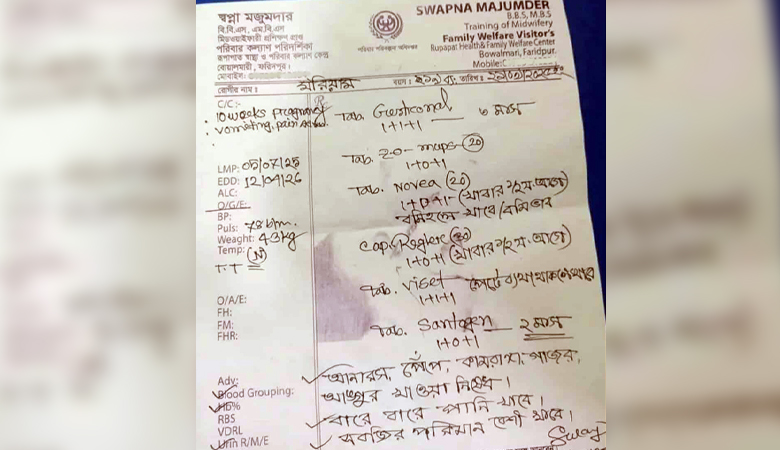 স্বপ্না মজুমদার
বি.বি.এস, এম.বি.এস
মিডওয়াইফারী প্রশিক্ষণ প্রাপ্ত
পরিবার কল্যাণ পরিদর্শিকা
রূপাপাত স্বাস্থ্য ও পরিবার কল্যাণ কেন্দ্র
বোয়ালমারী, ফরিদপুর।
মোবাইল:
পরিবার পরিকল্পনা অধিদপ্তর
SWAPNA MAJUMDER
B.B.S, M.B.S
Training of Midwifery
Family Welfare Visitor's
Rupapat Health & Family Welfare Center
Bowalmari, Faridpur.
Mobile:
রোগীর নাম: মরিয়াম বয়স: তারিখ:
C/C:-
10 weeks pregnancy
vomiting, pain
LMP: 05/07/25
EDD: 12/04/26
ALC:
O/G/E:
BP:
Puls: 78 b/m.
Weaght: 43 kg
Temp: (N)
T.T
O/A/E:
FH:
FM:
FHR:
Adv:
Blood Grouping:
Hb%
RBS
VDRL
Urin R/M/E
Rx
Tab. Gestronal
1+1+1 — ৬ মাস
Tab. 20-mups (20)
1+0+1
Tab. Novea (20)
(খাবার ১/২ ঘ: আগে)
বমি হলে খাবে / বমি ভাব
Cap. (খাবার ১/২ ঘ: আগে)
1+0+1
Tab. Viset পেটে ব্যথা থাকলে খাবে
1+1+1
Tab. Santogen — ২ মাস
1+0+1
আনারস, পেঁপে, কামরাঙ্গা, গাজর,
আঙ্গুর খাওয়া নিষেধ।
বারে বারে পানি খাবে।
সবজির পরিমান বেশী খাবে।